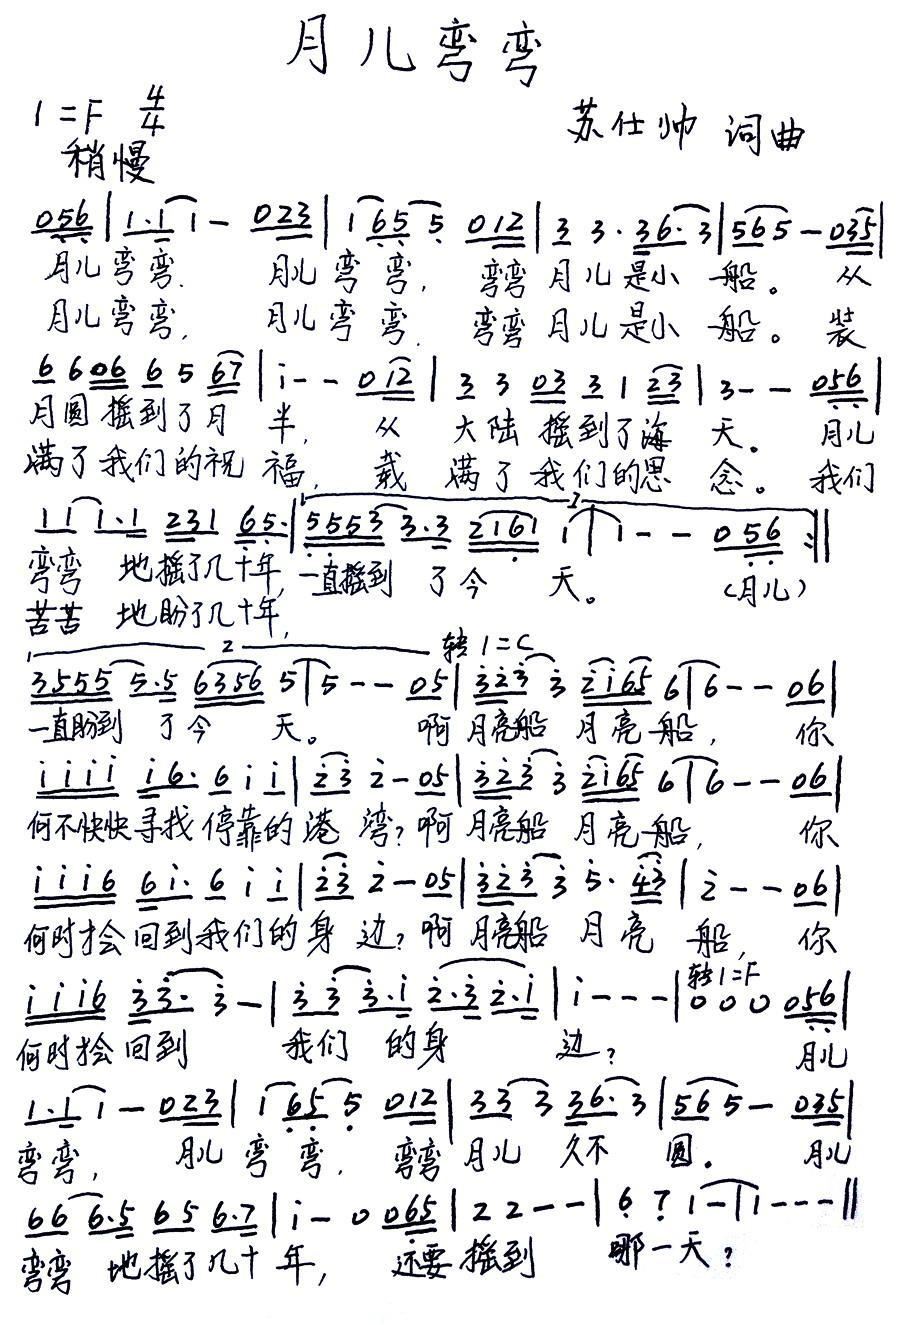 月儿弯弯
1=F 4/4
苏仕帅 词曲
稍慢
056 | 1·1 1 - 023 | 1 65 5 012 | 3 3· 36· 3 | 565 - 035 |
月儿弯弯. 月儿弯弯, 弯弯月儿是小船。从
月儿弯弯, 月儿弯弯. 弯弯月儿是小船。装
6 606 6 5 67 | i - - 012 | 3 3 03 3 1 23 | 3 - - 056 |
月圆摇到了月半, 从大陆摇到了海天。月儿
满了我们的祝福, 载满了我们的思念。我们
1
11 1·1 231 65· | 5553 3·3 2161 1 | 1 - - 056 :||
弯弯 地摇了几十年, 一直摇到了今天。 (月儿)
苦苦 地盼了几十年,
2 转1=C
3555 5·5 6356 5 | 5 - - 05 | 323 3 2i65 6 | 6 - - 06 |
一直盼到了今天。 啊月亮船月亮船, 你
iiii i6· 6 i i | 23 2 - 05 | 323 3 2i65 6 | 6 - - 06 |
何不快快寻找停靠的港湾? 啊月亮船月亮船, 你
iii6 6i· 6 i i | 23 2 - 05 | 323 3 5· 43 | 2 - - 06 |
何时才会回到我们的身边? 啊月亮船月亮船, 你
转1=F
iii6 33· 3 - | 3 3 3·i 2·3 2·i | i - - - | 0 0 0 056 |
何时才会回到 我们的身边? 月儿
1·1 1 - 023 | 1 65 5 012 | 33 3 36· 3 | 565 - 035 |
弯弯, 月儿弯弯, 弯弯月儿久不圆。月儿
66 6·5 65 6·7 | i - 0 065 | 22 - - | 6 7 1 - | 1 - - - ||
弯弯 地摇了几十年, 还要摇到 哪一天?